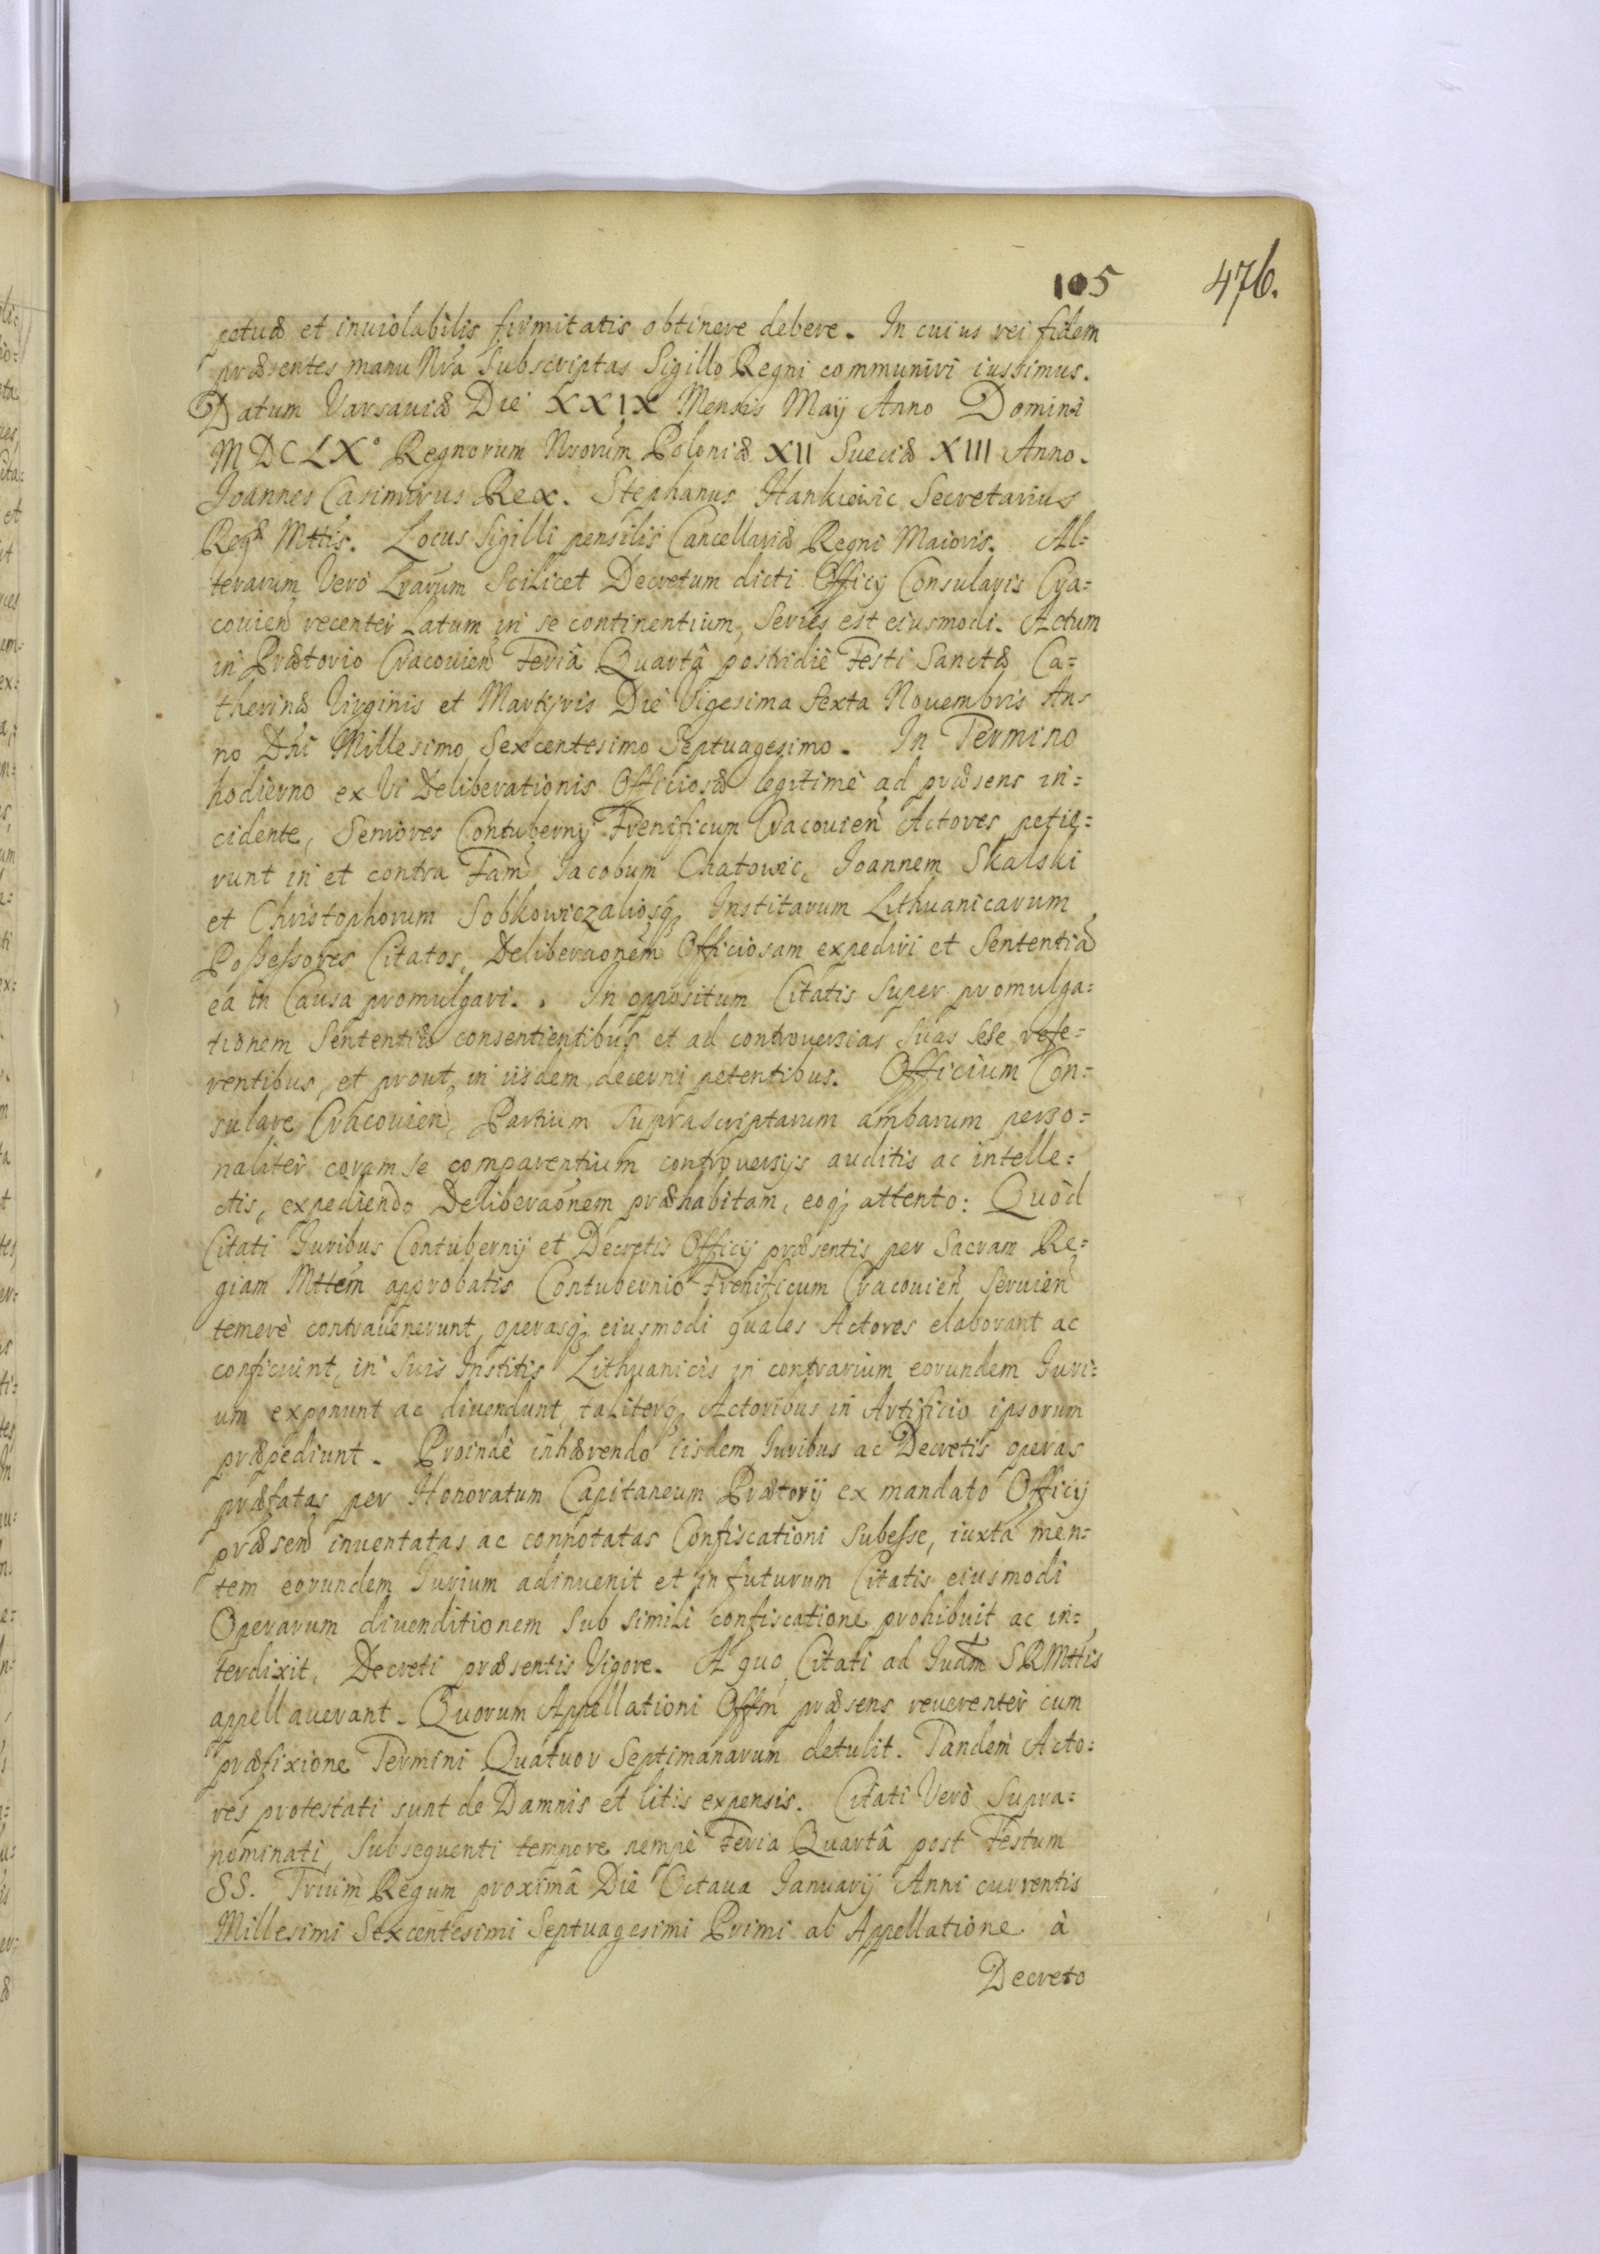 105 476.
petuæ et inuiolabilis firmitatis obtinere debere. In cuius rei fidem
præsentes manu Nrã Subscriptas Sigillo Regni communiri iussimus.
Datum Varsauiæ Die XXIX Mensis Maij Anno Domini
MDCLX° Regnorum Nrorum Poloniæ XII Sueciæ XIII Anno.
Joannes Casimirus Rex. Stephanus Hankiewic Secretarius
Regæ Mttis. Locus Sigilli pensilis Cancellariæ Regni Maioris. Al=
terarum Vero Lrarum Scilicet Decretum dicti Officij Consularis Cra=
couieñ recenter Latum in se continentium, Series est eiusmodi. Actum
in Prætorio Cracouieñ Feriâ Quartâ postridie Festi Sanctæ Ca=
therinæ Virginis et Martyris Die Vigesima Sexta Nouembris An=
no Dñi Millesimo Sexcentesimo Septuagesimo. In Termino
hodierno ex Vi Deliberationis Officiosæ legitimè ad præsens in=
cidente, Seniores Contubernij Frenificum Cracouieñ Actores petie=
runt in et contra Fam̃ Jacobum Chatowic, Joannem Skalski
et Christophorum Sobkowicz aliosq; Institarum Lithuanicarum
Possessores Citatos, Deliberaõnem Officiosam expediri et Sententiã
eã in Causa promulgari. In oppositum Citatis Super promulga=
tionem Sententiæ consentientibus et ad controuersias Suas Sese refe=
rentibus, et prout in iisdem decerni petentibus. Officium Con=
sulare Cracouieñ, Partium suprascriptarum ambarum perso=
naliter coram se comparentium controuersijs auditis ac intelle=
ctis, expediendo Deliberaõnem præhabitam, eoq; attento: Quòd
Citati Juribus Contubernij et Decretis Officij præsentis per Sacram Re=
giam Mttem approbatis Contubernio Frenificum Cracouieñ Seruieñ
temerè contrauenerunt, operasq; eiusmodi quales Actores elaborant ac
conficiunt, in Suis Institis Lithuanicis in contrarium eorundem Juri=
um exponunt ac diuendunt, taliterq; Actoribus in Artificio ipsorum
præpediunt. Proindè inhærendo iisdem Juribus ac Decretis operas
præfatas per Honoratum Capitaneum Prætorij ex mandato Officij
præseñ inuentatas ac connotatas Confiscationi Subesse, iuxta men=
tem eorundem Jurium adinuenit et in futurum Citatis eiusmodi
Operarum diuenditionem Sub simili confiscatione prohibuit ac in=
terdixit, Decreti præsentis Vigore. A quo Citati ad Judm̃ SRMttis
appellauerant. Quorum Appellationi Offm̃ præsens reuerenter cum
præfixione Termini Quatuor Septimanarum detulit. Tandem Acto=
res protestati sunt de Damnis et litis expensis. Citati Verò Supra=
nominati, Subsequenti tempore nempè Feria Quartâ post Festum
SS. Trium Regum proximâ Die Octaua Januarij Anni currentis
Millesimi Sexcentesimi Septuagesimi Primi ab Appellatione à
Decreto